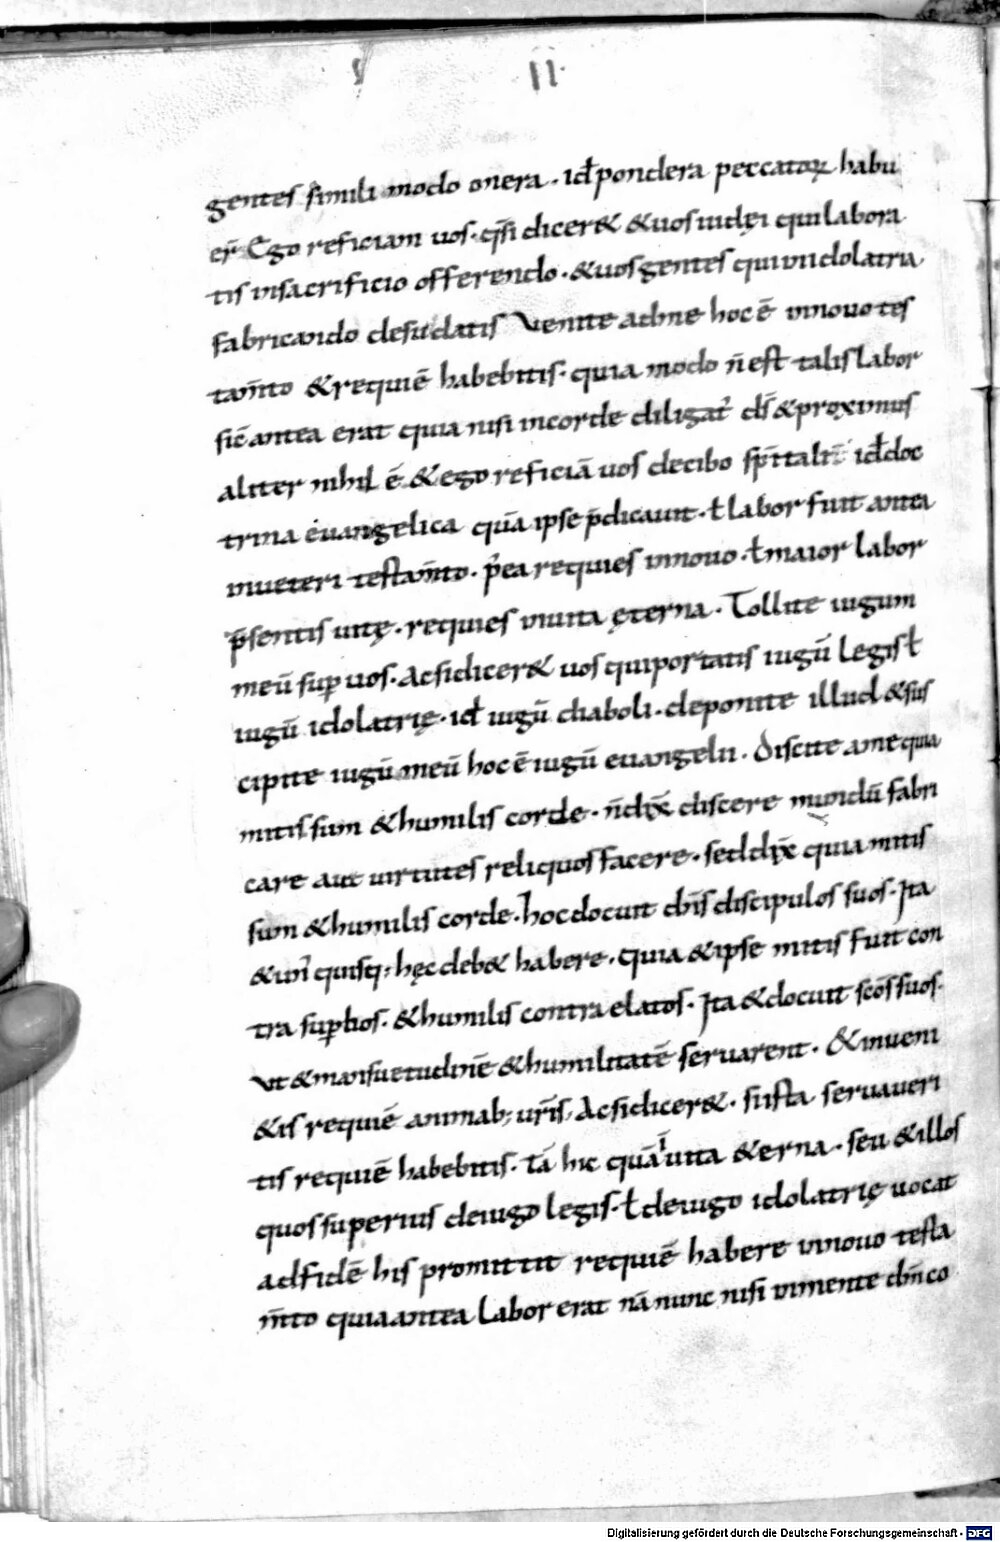 II
gentes simili modo onera · id÷ pondera peccatoꝝ habu
er̄ Ego reficiam uos · q̄si dicer& & uos iudęi qui labora
tis in sacrificio offerendo · & uos gentes qui in idolatria
fabricando desudatis Venite ad me hoc ē in nouo tes
tam̄to & requiē habebitis · quia modo n̄ est talis labor
sic̄ antea erat quia nisi in corde diligat͛ d̄s & proximus
aliter nihil ē & ego reficiā uos decibo sp̄italit̄ id÷ doc
trina euangelica quā ipse p̄dicauit · ł labor fuit antea
in ueteri testam̄to · p̄ ea requies in nouo · ł maior labor
p̄sentis uitę · requies in uita ęterna · Tollite iugum
meū sup̱ uos · Ac si dicer& uos qui portatis iugū legis ł
iugū idolatrię · id÷ iugū diaboli · deponite illud & sus
cipite iugū meū hoc ē iugū euangelii · Discite a me quia
mitis sum & humilis corde · n̄ dix̄ discere mundū fabri
care aut uirtutes reliquos facere · sed dix̄ quia mitis
sum & humilis corde · hoc docuit dn̄s discipulos suos · Ita
& un͛ quisq; hęc deb& habere · quia & ipse mitis fuit con
tra sup̱bos · & humilis contra elatos · Ita & docuit sc̄os suos ·
Vt & mansuetudinē & humilitatē seruarent · & inueni
&is requiē animab; ur̄is, Ac si dicer& · si ista seruaueri
tis requiē habebitis · tā hic quā i uita &erna · seu & illos
quos superius de iugo legis · ł de iugo idolatrię uocat
ad fidē his promittit requiē habere in nouo testa
m̄to quia antea labor erat nā nunc nisi in mente dn̄i co
Digitalisierung gefördert durch die Deutsche Forschungsgemeinschaft - DFG